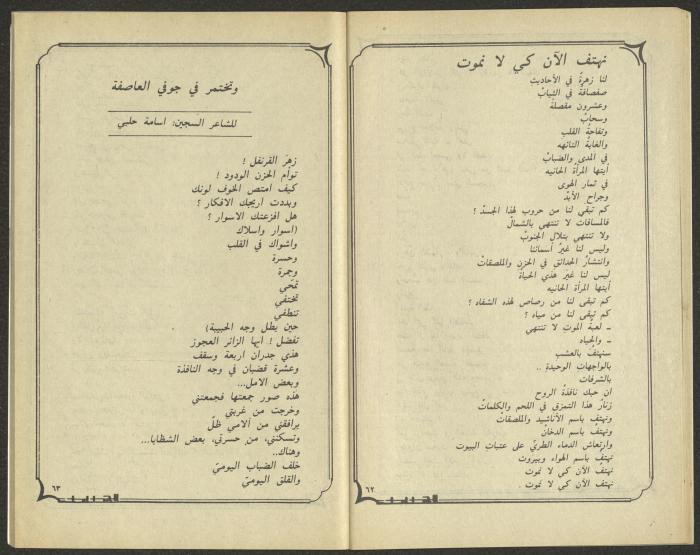 نهتف الآن كي لا نموت
لنا زهرةٌ في الأحاديثِ
صفصافةٌ في الثيابْ
وعشرون مقصلة
وسحابْ
وتفاحةُ القلبِ
والغابةُ التائهه
في المدى والضبابْ
أيتها المرأة الحانيه
في ثمار الهوى
وجراح الأبدْ
كم تبقى لنا من حروب لهذا الجسدْ ؟
فالمسافات لا تنتهي بالشمالْ
ولا تنتهي بتلال الجنوبْ
وليس لنا غيرُ أسمائنا
وانتشارُ الحدائق في الحزنِ والملصقاتْ
ليس لنا غيرَ هذي الحياة
أيتها المرأة الحانيه
كم تبقى لنا من رصاص لهذه الشفاه ؟
كم تبقى لنا من مياه ؟
ـ لعبةُ الموتِ لا تنتهي
ـ والحياه
سنهتفُ بالعشب
بالواجهاتِ الوحيدةِ ..
بالشرفات
ان حبك نافذةُ الروح
زنارُ هذا التمزق في اللحم والكلماتْ
ونهتف باسم الأناشيد والملصقاتْ
ونهتف باسم الدخانْ
وارتعاش الدماء الطريّ على عتباتِ البيوت
نهتف باسم الهواء وبيروت
نهتف الآن كي لا نموت
نهتف الآن كي لا نموت .
٦٢
وتختمر في جوفي العاصفة
للشاعر السجين: اسامة حلبي
زهرَ القرنفل !
توأم الحزن الودود !
كيف امتص الخوف لونك
وبددت أريجك الافكار ؟
هل افزعتك الاسوار ؟
(أسوار وأسلاك
وأشواك في القلب
وحسرة
وجمرة
تمّحي
تختفي
تنطفي
حين يطل وجه الحبيبة)
تفضل ! ايها الزائر العجوز
هذي جدران اربعة وسقف
وعشرة قضبان في وجه النافذة
وبعض الامل...
هذه صور جمعتها فجمعتني
وخرجت من غربتي
يرافقني من آلامي ظلّ
وتسكنني، من حسرتي، بعض الشظايا...
وهناك..
خلف الضباب اليوميّ
والقلق اليوميّ
٦٣